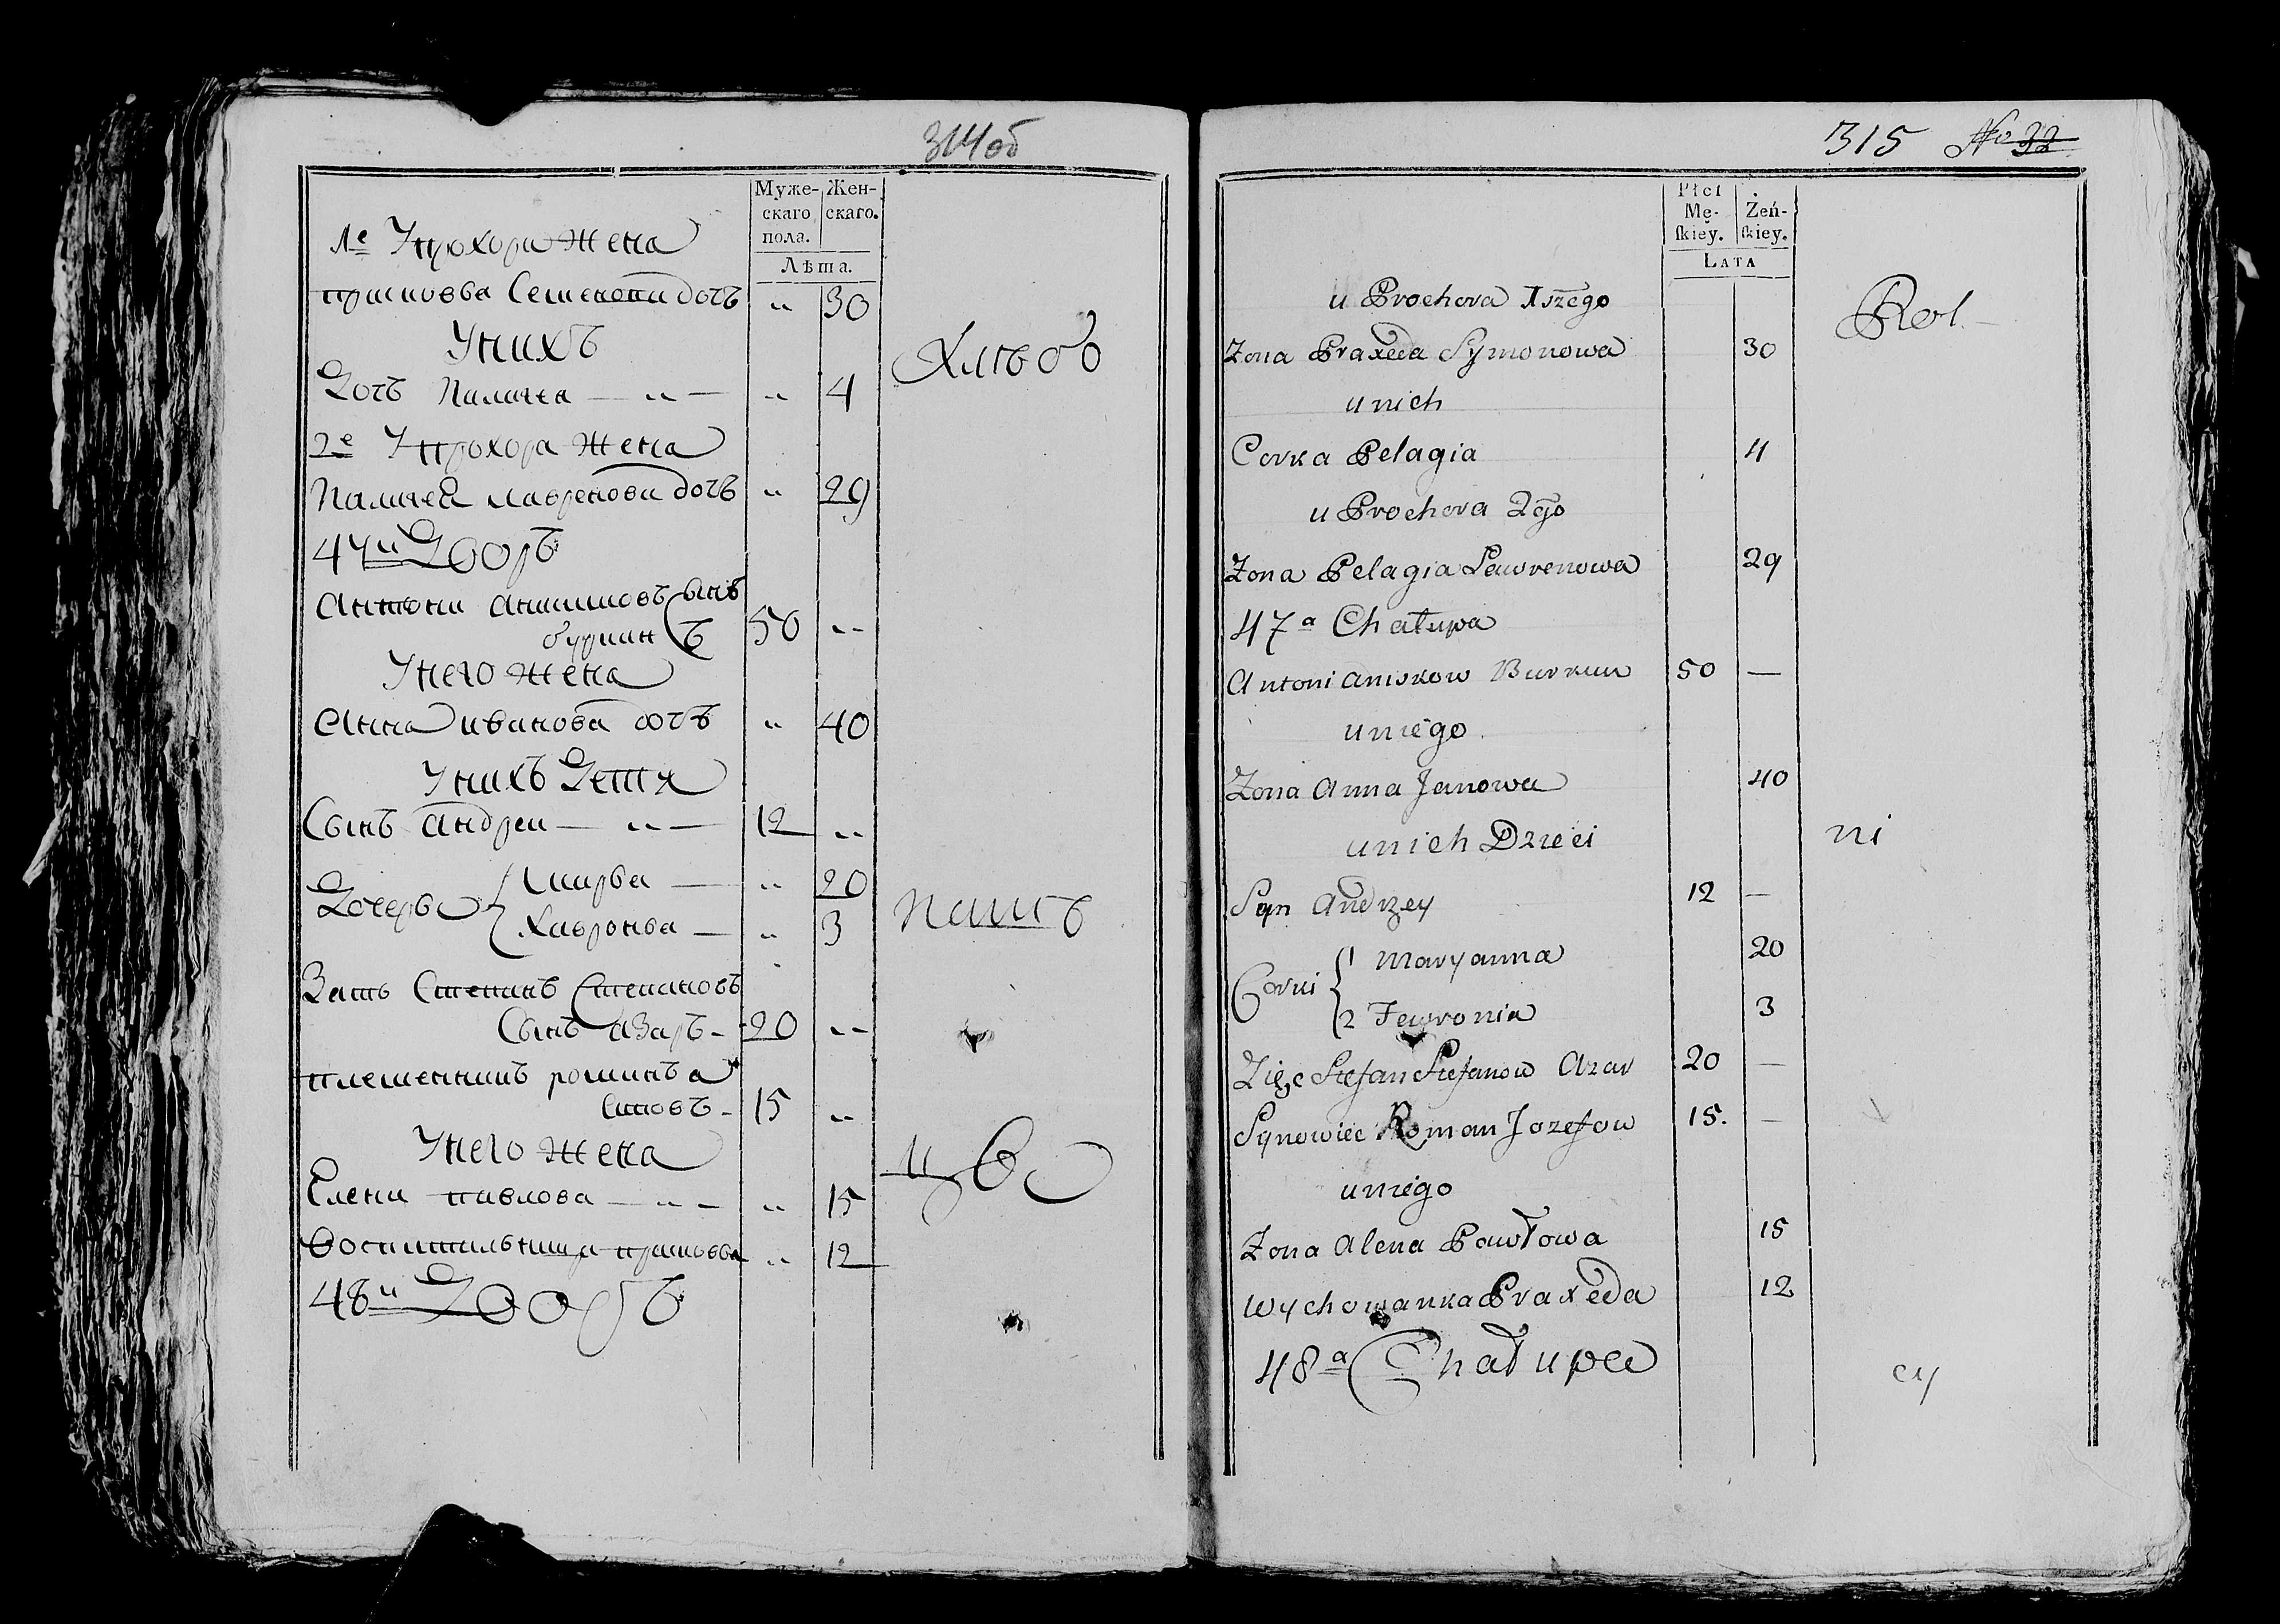 314об
Муже- Жен-
скаго скаго.
пола.
Лѣта.
1е У прохора жена
прасковья Семенова дочь " 30
У нихъ
Дочь Палагея — " — " 4
2е У прохора жена
Палагея лавренова дочь " 29
47й Дворъ
Антони сынъ
50 "
У него жена
Анна иванова дочь " 40
У нихъ Детя
Сынъ андреи — " — 12 "
Дочеръ Марья — " 20
Хавронья — " 3
Зять Степанъ Степановъ
Сынъ азаръ - 20 "
племенникъ романъ
15 "
У него жена
Елена павлова — " - " 15
Воспитальница прасковья " 12
48й Дворъ
Хлѣбо
паш
цы
315 № 32
Płci
Mę- Żeń-
ſkiey. ſkiey.
LATA
u Prochora 1szego
Zona Praxeda Symonowa 30
u nich
Corka Pelagia 4
u Prochora 2go
Zona Pelagia Lawrenowa 29
47a Chałupa
Antoni aniskow Burkun 50 —
u niego
Zona Anna Janowa 40
u nich Dzieci
Syn Andrzey 12 —
Corki 1 Maryanna 20
2 Fewronia 3
Zięc Stefan Stefanow Azar 20 —
Synowiec Roman Jozefow 15. —
u niego
Zona Alena Pawłowa 15
Wychowanka Praxeda 12
48a Chałupa
Rol-
ni
cy